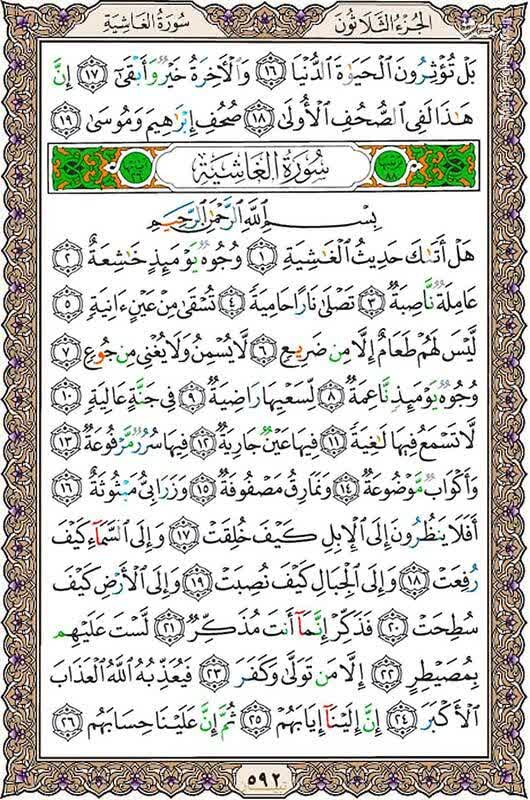 سُورَةُ الغَاشِيَةِ الجُزْءُ الثَّلَاثُونَ
بَلْ تُؤْثِرُونَ الْحَيَوٰةَ الدُّنْيَا ١٦ وَالْأَخِرَةُ خَيْرٌ وَأَبْقَىٰٓ ١٧ إِنَّ
هَٰذَا لَفِى الصُّحُفِ الْأُولَىٰ ١٨ صُحُفِ إِبْرَٰهِيمَ وَمُوسَىٰ ١٩
سُورَةُ الغَاشِيَةِ
بِسْمِ اللَّهِ الرَّحْمَٰنِ الرَّحِيمِ
هَلْ أَتَىٰكَ حَدِيثُ الْغَٰشِيَةِ ١ وُجُوهٌ يَوْمَئِذٍ خَٰشِعَةٌ ٢
عَامِلَةٌ نَّاصِبَةٌ ٣ تَصْلَىٰ نَارًا حَامِيَةً ٤ تُسْقَىٰ مِنْ عَيْنٍ ءَانِيَةٍ ٥
لَّيْسَ لَهُمْ طَعَامٌ إِلَّا مِن ضَرِيعٍ ٦ لَّا يُسْمِنُ وَلَا يُغْنِى مِن جُوعٍ ٧
وُجُوهٌ يَوْمَئِذٍ نَّاعِمَةٌ ٨ لِّسَعْيِهَا رَاضِيَةٌ ٩ فِى جَنَّةٍ عَالِيَةٍ ١٠
لَّا تَسْمَعُ فِيهَا لَٰغِيَةً ١١ فِيهَا عَيْنٌ جَارِيَةٌ ١٢ فِيهَا سُرُرٌ مَّرْفُوعَةٌ ١٣
وَأَكْوَابٌ مَّوْضُوعَةٌ ١٤ وَنَمَارِقُ مَصْفُوفَةٌ ١٥ وَزَرَابِىُّ مَبْثُوثَةٌ ١٦
أَفَلَا يَنظُرُونَ إِلَى الْإِبِلِ كَيْفَ خُلِقَتْ ١٧ وَإِلَى السَّمَآءِ كَيْفَ
رُفِعَتْ ١٨ وَإِلَى الْجِبَالِ كَيْفَ نُصِبَتْ ١٩ وَإِلَى الْأَرْضِ كَيْفَ
سُطِحَتْ ٢٠ فَذَكِّرْ إِنَّمَآ أَنتَ مُذَكِّرٌ ٢١ لَّسْتَ عَلَيْهِم
بِمُصَيْطِرٍ ٢٢ إِلَّا مَن تَوَلَّىٰ وَكَفَرَ ٢٣ فَيُعَذِّبُهُ اللَّهُ الْعَذَابَ
الْأَكْبَرَ ٢٤ إِنَّ إِلَيْنَآ إِيَابَهُمْ ٢٥ ثُمَّ إِنَّ عَلَيْنَا حِسَابَهُم ٢٦
٥٩٢